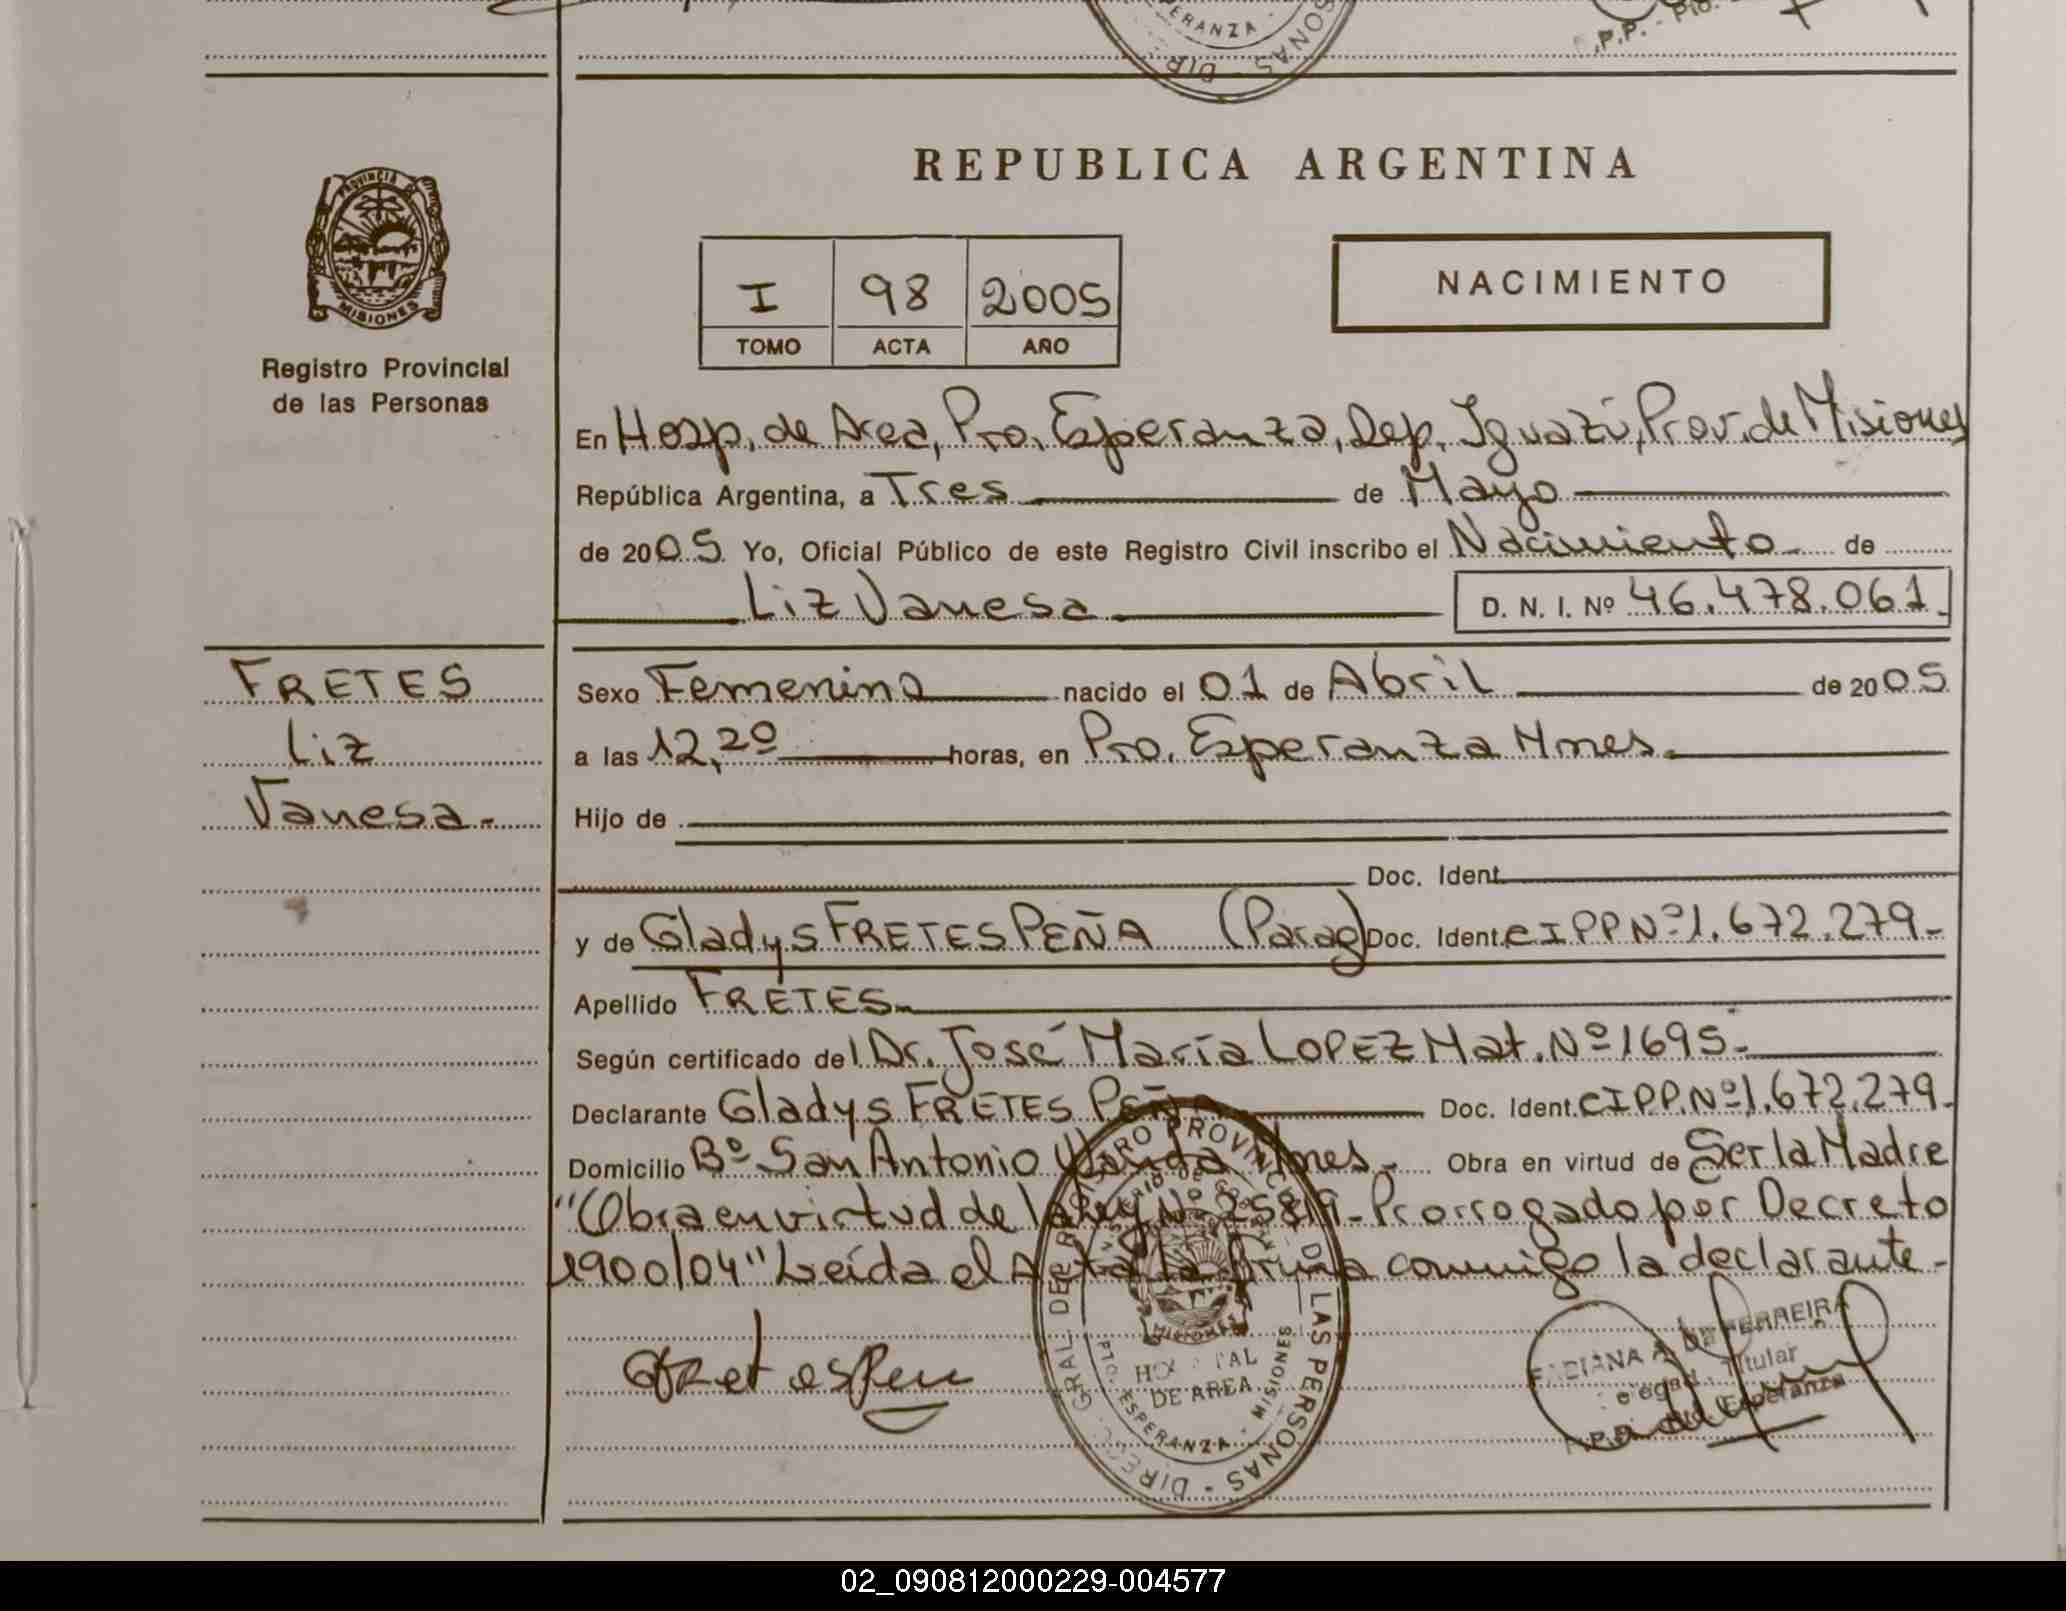 ERANZA
DIR SONAS
P.P. - Pto.
PROVINCIA DE
MISIONES
Registro Provincial
de las Personas
REPUBLICA ARGENTINA
I 98 2005
TOMO ACTA AÑO
NACIMIENTO
En Hosp. de Area, Pto. Esperanza, Dep. Iguazú, Prov. de Misiones
República Argentina, a Tres de Mayo
de 2005 Yo, Oficial Público de este Registro Civil inscribo el Nacimiento de
Liz Vanesa D. N. I. Nº 46.478.061.
FRETES
Liz
Vanesa.-
Sexo Femenino nacido el 01 de Abril de 2005
a las 12,20 horas, en Pto. Esperanza Mnes.
Hijo de
Doc. Ident.
y de Gladys FRETES PEÑA (Parag) Doc. Ident. CIPP Nº 1.672.279.-
Apellido FRETES.
Según certificado del Dr. José María LOPEZ Mat. Nº 1695.-
Declarante Gladys FRETES PEÑA Doc. Ident. CIPP. Nº 1.672.279.-
Domicilio Bº San Antonio Wanda Mnes.- Obra en virtud de Ser la Madre
"Obra en virtud de la Ley Nº 25819- Prorrogado por Decreto
1900/04" Leída el Acta la firma conmigo la declarante.-
REGISTRO PROVINCIAL DE LAS PERSONAS
MISIONES
HOSPITAL
DE AREA
PTO. ESPERANZA - MISIONES
DE FERREIRA
Titular
Esperanza
02_090812000229-004577